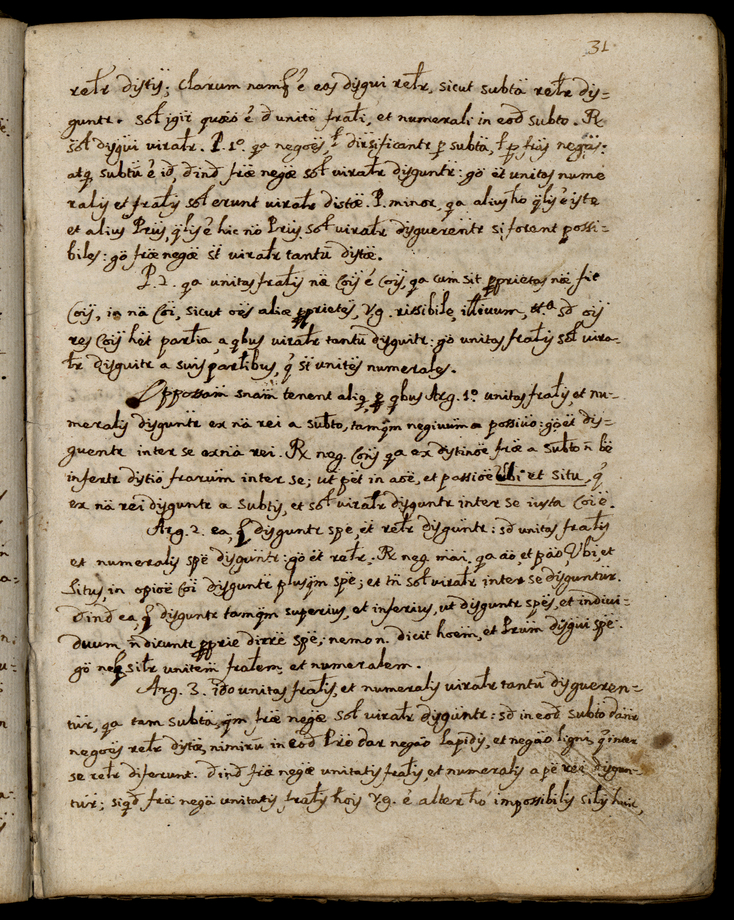 31
reler distis; Clarum namq́ é eos disgui reler, sicut subta reler dis=
guntr. Sol igit quaeo é d unite frali, et numerali in eod subto. R.
sol disgui viralr. P. 1.º qa negoes, dirsificantr p subta, p fras negas:
atq subtu é id, dind frae negae sol viralr disguntr: gò et unitas nume
ralis et fralis sol erunt viralr distae. P. minor, qa alius ho qlis é iste
et alius Prus, qlis é hic nò Prus sol viralr disguerentr si forent possi=
biles: gò frae negae st viralr tantu distae.
P. 2. qa unitas fralis nae Cois é Cois, qa cum sit pprietas nae fit
Cois, in na Coi, sicut oes aliae pprietes, v.g. rissibile, sd ois
res Cois het partia, a qbus viralr tantu disguitr: gò unitas fralis sol vira=
lr disguitr a suis partibus, q̃ st unites numerales.
Oppositam snam tenent aliq p qbus Arg. 1.º unitas fralis, et nu=
meralis disguntr ex na rei a subto, tamqm negiuum a possiuo: gò et dis=
guentr inter se ex na rei. R. neg. Cons qa ex distinoe frae a subto n bé
infertr distio frarum inter se; ut pèt in aoe, et passioe Ubi et situ, q̃
ex na rei disguntr a Subtis, et sol viralr disguntr inter se iuxta Coi é.
Arg. 2. ea, q̃ disguntr spe, et reler disguntr: sd unitas fralis
et numeralis spe disguntr: gò et reler. R. neg. mai. qa ao, et pao, Ubi, et
Situs, in opioe Coi disguntr plusqm spe; et tn sol viralr inter se disguntur.
Dind ea, q̃ disguntr tamqm superius, et inferius, ut disguntr spes, et indiui=
duum, n dicuntr pprie dirre spe; nemo n. dicit hoem, et Prum disgui spe.
gò neq silr unitem fralem et numeralem.
Arg. 3. ido unitas fralis, et numeralis viralr tantu disgueren=
tur, qa tam subta, qm frae negae sol viralr disguntr: sd in eod subto dantr
negoes reler distae, nimiru in eod Pro dar negao lapidis, et negao ligni, q̃ inter
se reler diferunt. Dind frae negae unitatis fralis, et numeralis a pe rei disgun=
tur; siqd fra nega unitatis fralis hois v.g. é alter ho impossibilis silis huic,